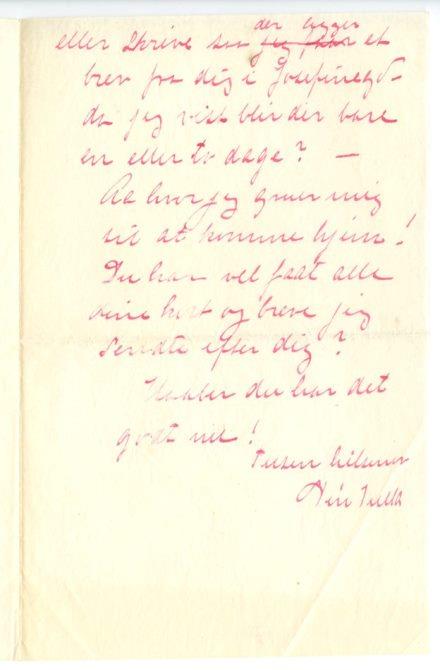 der ligger
eller skrive saa jeg faar et
brev fra dig i Josefinegd.
da jeg vist blir der bare
en eller to dage? —
Aa hvor jeg gruer mig
til at komme hjem!
Du har vel faat alle
dine kort og breve jeg
sendte efter dig?
Haaber du har det
godt nu!
Tusen hilsener
Din Tulla